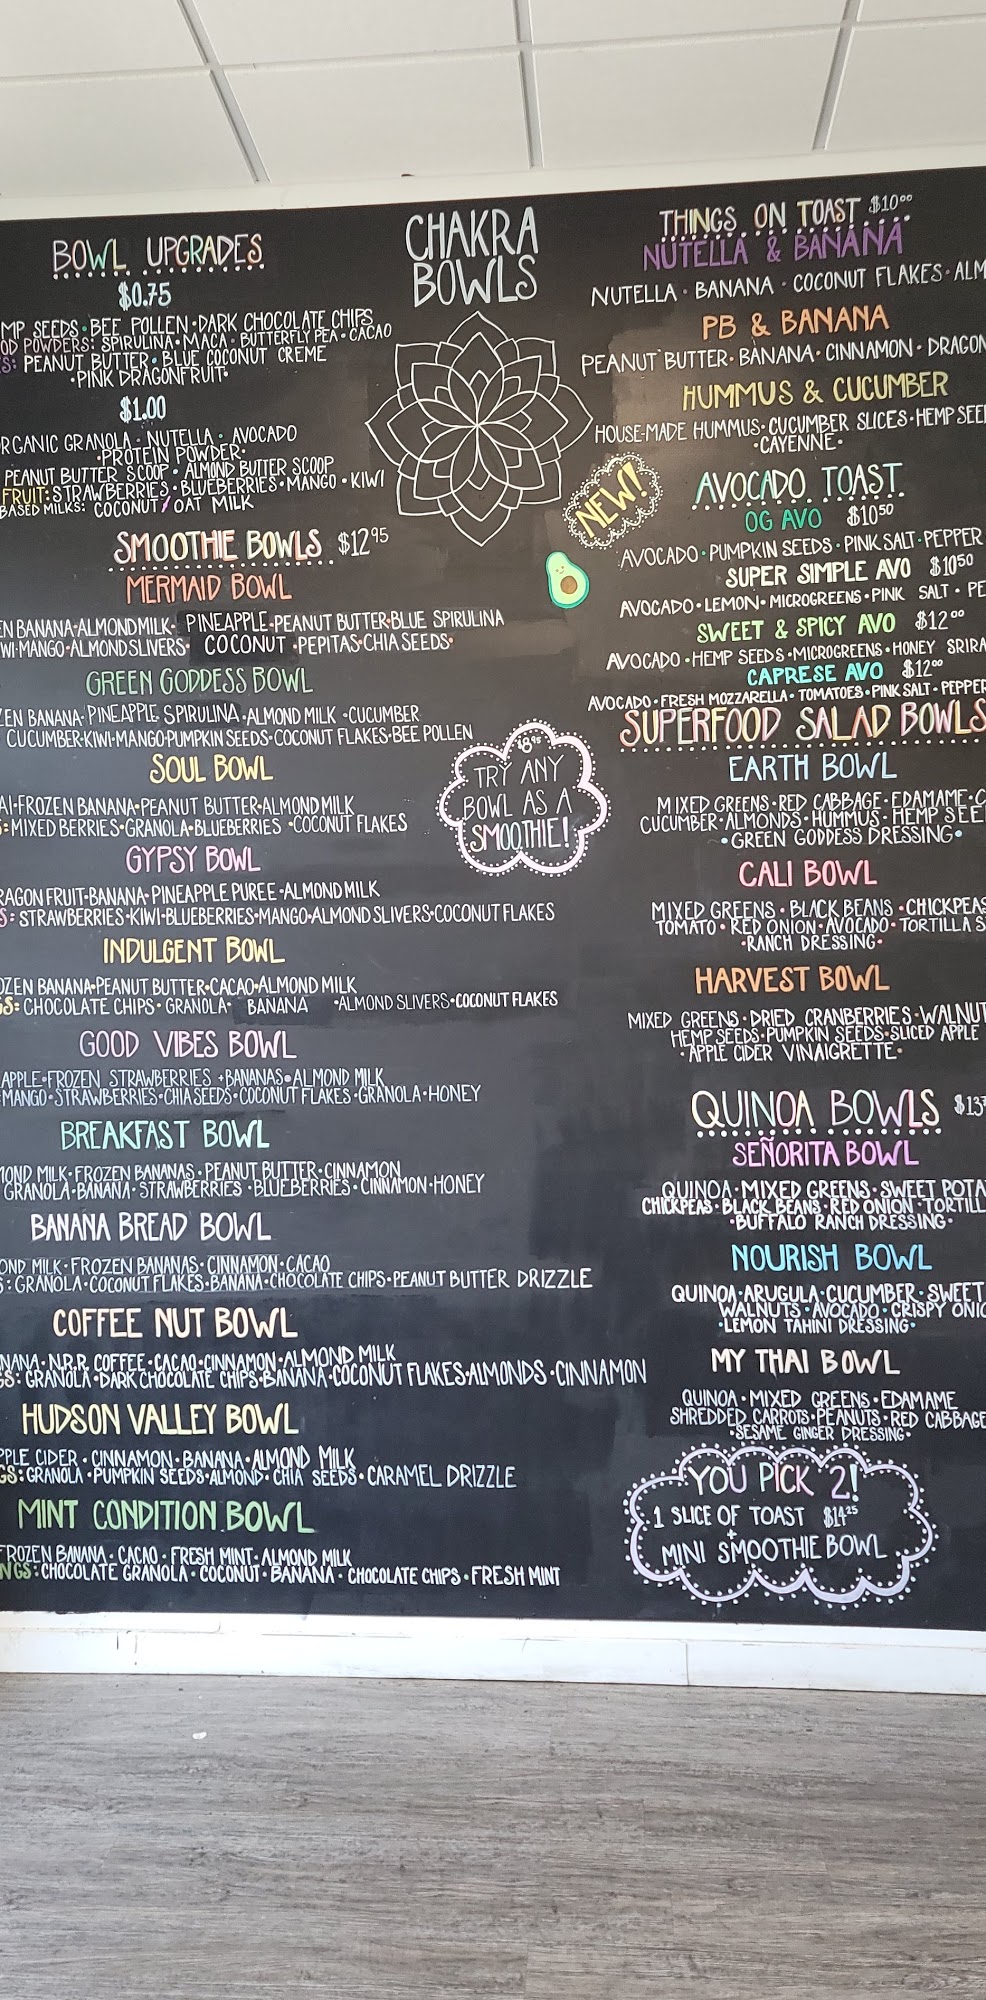 CHAKRA
BOWLS
BOWL UPGRADES
$0.75
SEEDS • BEE POLLEN • DARK CHOCOLATE CHIPS
POWDERS: SPIRULINA • MACA • BUTTERFLY PEA • CACAO
PEANUT BUTTER • BLUE COCONUT CREME
• PINK DRAGONFRUIT •
$1.00
GRANOLA • NUTELLA • AVOCADO
• PROTEIN POWDER •
PEANUT BUTTER SCOOP • ALMOND BUTTER SCOOP
FRUIT: STRAWBERRIES • BLUEBERRIES • MANGO • KIWI
BASED MILKS: COCONUT / OAT MILK
SMOOTHIE BOWLS $12.95
MERMAID BOWL
BANANA • ALMOND MILK • PINEAPPLE • PEANUT BUTTER • BLUE SPIRULINA
MANGO • ALMOND SLIVERS • COCONUT • PEPITAS • CHIA SEEDS •
GREEN GODDESS BOWL
BANANA • PINEAPPLE SPIRULINA • ALMOND MILK • CUCUMBER
CUCUMBER • KIWI • MANGO • PUMPKIN SEEDS • COCONUT FLAKES • BEE POLLEN
SOUL BOWL
FROZEN BANANA • PEANUT BUTTER • ALMOND MILK
MIXED BERRIES • GRANOLA • BLUEBERRIES • COCONUT FLAKES
GYPSY BOWL
FRUIT • BANANA • PINEAPPLE PUREE • ALMOND MILK
STRAWBERRIES • KIWI • BLUEBERRIES • MANGO • ALMOND SLIVERS • COCONUT FLAKES
INDULGENT BOWL
BANANA • PEANUT BUTTER • CACAO • ALMOND MILK
CHOCOLATE CHIPS • GRANOLA • BANANA • ALMOND SLIVERS • COCONUT FLAKES
GOOD VIBES BOWL
FROZEN STRAWBERRIES + BANANAS • ALMOND MILK
MANGO • STRAWBERRIES • CHIA SEEDS • COCONUT FLAKES • GRANOLA • HONEY
BREAKFAST BOWL
MILK • FROZEN BANANAS • PEANUT BUTTER • CINNAMON
GRANOLA • BANANA • STRAWBERRIES • BLUEBERRIES • CINNAMON • HONEY
BANANA BREAD BOWL
MILK • FROZEN BANANAS • CINNAMON • CACAO
GRANOLA • COCONUT FLAKES • BANANA • CHOCOLATE CHIPS • PEANUT BUTTER DRIZZLE
COFFEE NUT BOWL
N.R.R. COFFEE • CACAO • CINNAMON • ALMOND MILK
GRANOLA • DARK CHOCOLATE CHIPS • BANANA • COCONUT FLAKES • ALMONDS • CINNAMON
HUDSON VALLEY BOWL
CIDER • CINNAMON • BANANA • ALMOND MILK
GRANOLA • PUMPKIN SEEDS • ALMOND • CHIA SEEDS • CARAMEL DRIZZLE
MINT CONDITION BOWL
FROZEN BANANA • CACAO • FRESH MINT • ALMOND MILK
CHOCOLATE GRANOLA • COCONUT • BANANA • CHOCOLATE CHIPS • FRESH MINT
$8.95
TRY ANY
BOWL AS A
SMOOTHIE!
THINGS ON TOAST $10.00
NUTELLA & BANANA
NUTELLA • BANANA • COCONUT FLAKES •
PB & BANANA
PEANUT BUTTER • BANANA • CINNAMON • DRAGON
HUMMUS & CUCUMBER
HOUSE-MADE HUMMUS • CUCUMBER SLICES • HEMP
• CAYENNE •
NEW!
AVOCADO TOAST
OG AVO $10.50
AVOCADO • PUMPKIN SEEDS • PINK SALT • PEPPER
SUPER SIMPLE AVO $10.50
AVOCADO • LEMON • MICROGREENS • PINK SALT •
SWEET & SPICY AVO $12.00
AVOCADO • HEMP SEEDS • MICROGREENS • HONEY
CAPRESE AVO $12.00
AVOCADO • FRESH MOZZARELLA • TOMATOES • PINK SALT • PEPPER
SUPERFOOD SALAD BOWLS
EARTH BOWL
MIXED GREENS • RED CABBAGE • EDAMAME •
CUCUMBER • ALMONDS • HUMMUS • HEMP
• GREEN GODDESS DRESSING •
CALI BOWL
MIXED GREENS • BLACK BEANS • CHICKPEAS
TOMATO • RED ONION • AVOCADO • TORTILLA
• RANCH DRESSING •
HARVEST BOWL
MIXED GREENS • DRIED CRANBERRIES •
HEMP SEEDS • PUMPKIN SEEDS • SLICED APPLE
• APPLE CIDER VINAIGRETTE •
QUINOA BOWLS
SEÑORITA BOWL
QUINOA • MIXED GREENS • SWEET
CHICKPEAS • BLACK BEANS • RED ONION •
• BUFFALO RANCH DRESSING •
NOURISH BOWL
QUINOA • ARUGULA • CUCUMBER • SWEET
WALNUTS • AVOCADO • CRISPY
• LEMON TAHINI DRESSING •
MY THAI BOWL
QUINOA • MIXED GREENS • EDAMAME
SHREDDED CARROTS • PEANUTS • RED CABBAGE
• SESAME GINGER DRESSING •
YOU PICK 2!
1 SLICE OF TOAST $14.25
+
MINI SMOOTHIE BOWL